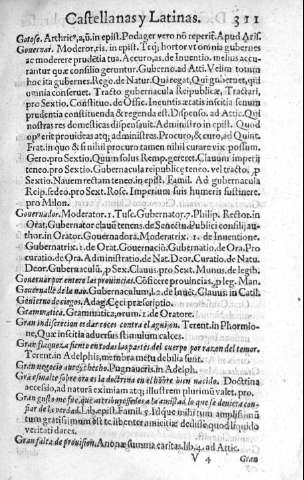 Castellanas y Latinas. 311
Gotoso. Arthrico, a, ũ. in epist. Podager vero nõ reperit. Apud Arist.
Gouernar. Moderor, ris, in epist. Treq; hortor vt omnia gubernes
ac moderere prudẽtia tua. Accuro, as. de Inuentio. melius accu-
rantur quæ consilio geruntur. Guberno. ad Atti. Velim totum
hoc ita gubernes. Rego. de Natu. Qui regat, Qui gubernet, qui
omnia conseruet. Tracto gubernacula Reipublicæ, Tractari,
pro Sextio. Constituo. de Offic. Ineuntis ætatis inscitia senum
prudentia constituenda & regenda est. Dispenso. ad Attic. Qui
nostras res domesticas dispensauit. Administro in epist. Quod
op° erit prouideas atq; administres. Procuro, & curo, ad Quint.
Frat. in quo & si nihil procuro tamen nihil curare vix possum.
Gero. pro Sextio, Quum solus Remp. gereret. Clauum imperij
teneo. pro Sextio, Gubernacula reipublicę teneo. vel tracto, p
Sextio. Nauem rectam teneo. in epist. Famil. Ad gubernacula
Reip. sedeo. pro Sext. Rosc. Imperium suis humeris sustinere.
pro Milon.
Gouernador. Moderator. 1. Tusc. Gubernator. 7. Philip. Rector. in
Orat. Gubernator clauũ tenens. de Senectu. Publici consilij au-
thor. in Orator. Gouernadora. Moderatrix. 1. de Inuentione.
Gubernatrix. 1. de Orat. Gouernaciõ. Gubernatio. de Ora. Pro
curatio. de Ora. Administratio. de Nat. Deor. Curatio. de Natu.
Deor. Gubernaculũ, p Sex. Clauus. pro Sext. Munus. de legib.
Gouernador por entre las prouincias. Gẽrere prouincias, p leg. Man.
Gouernalle de la nao. Gubernaculum, i. 2. de Inuẽ. Clauus. in Catil.
Gramatica. Grammatica, orum. 1. de Oratore.
Gran indiscrecion es dar coces contra el aguijon. Terent. in Phormio-
ne, Quæ inscitia aduersus stimulum calces.
Gran flaqueza siento en todas las partes del cuerpo por razon del temor.
Terent. in Adelphis, membra metu debilia sunt.
Gran negocio auerys hecho. Pugnaueris. in Adelph.
Doctrina
accesio, ad naturã eximiam atq; illustrem plurimũ valet. pro.
quod liquido
veritati daret.
Gran falta de prouision. Annonæ summa caritas. lib. 4. ad Attic.
V 4 Gran